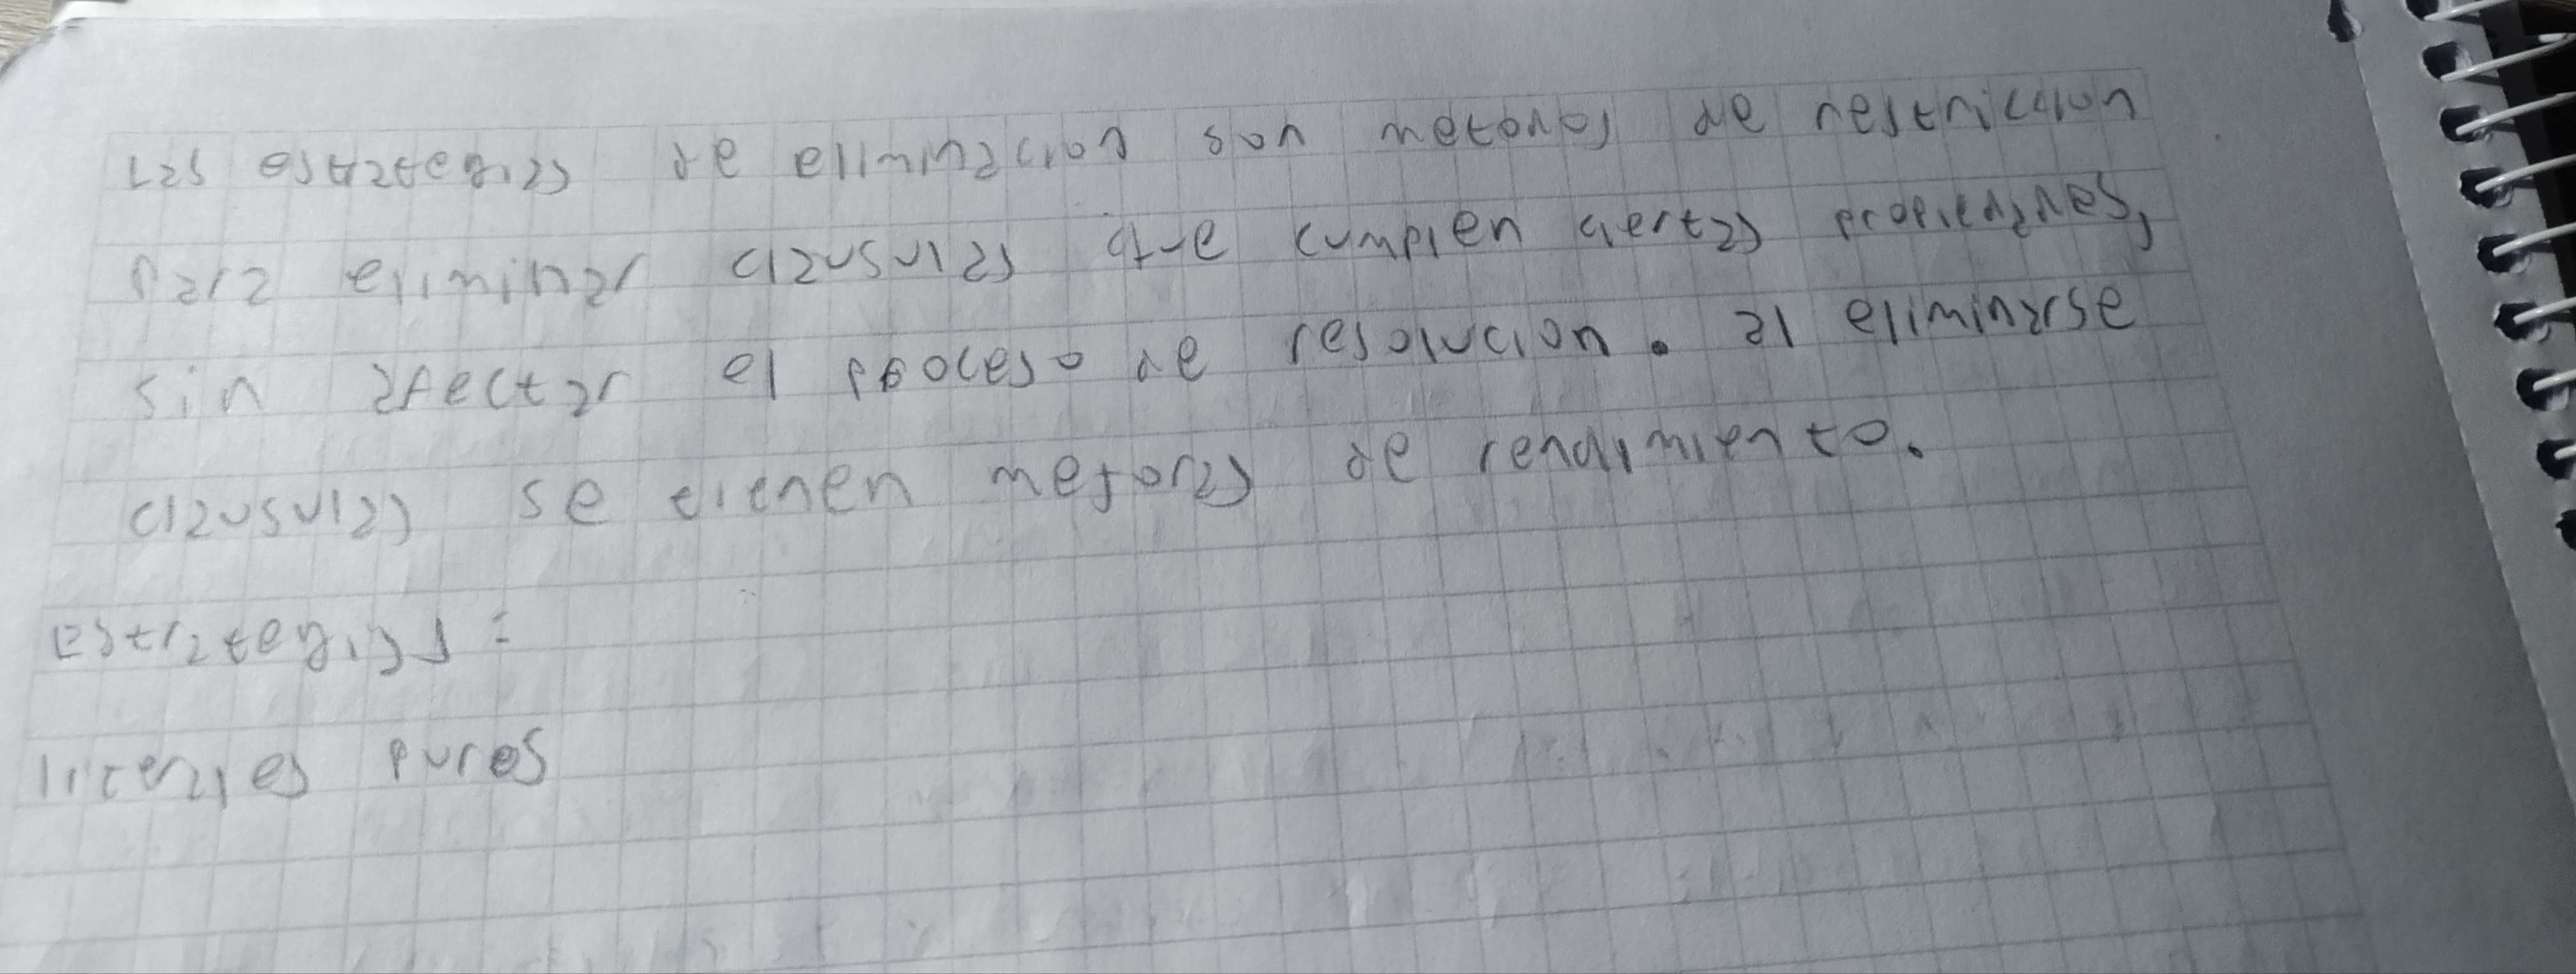 Las estrategias de eliminacion son metodos de restriccion
para eliminar clausulas que cumplen ciertas propiedades,
sin afectar el proceso de resolucion. al eliminarse
clausulas se tienen mejoras de rendimiento.
Estrategias:
literales puros